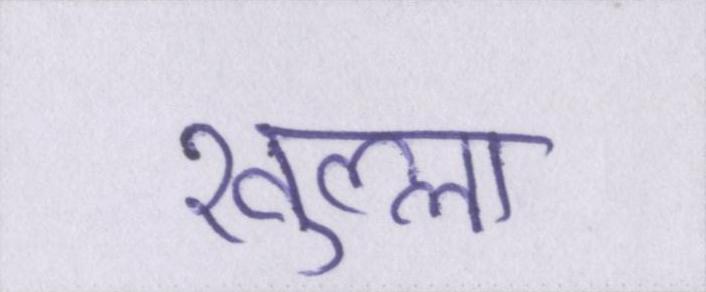 खुल्ला